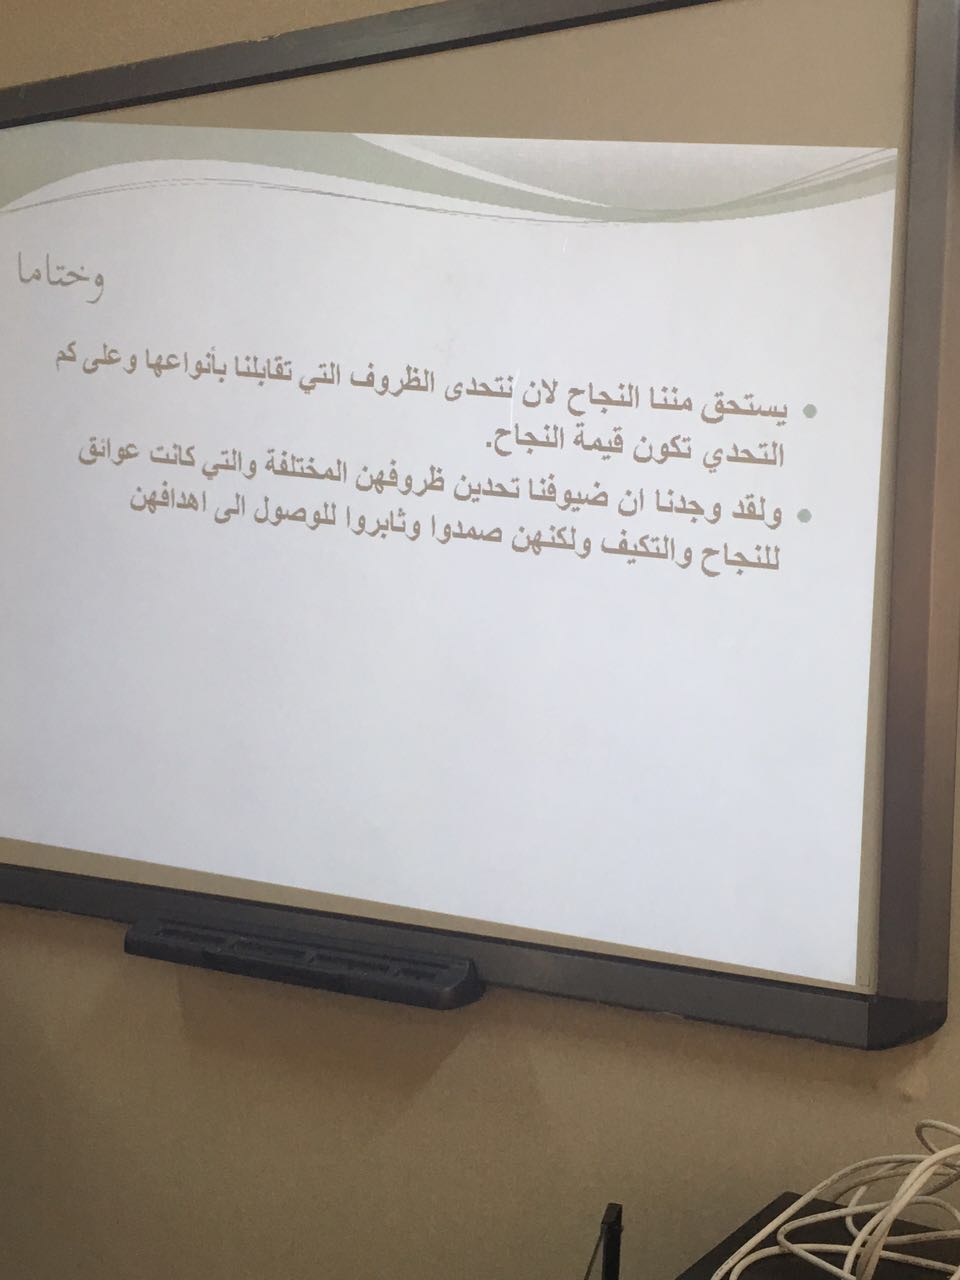 وختاما
يستحق مننا النجاح لان نتحدى الظروف التي تقابلنا بأنواعها وعلى كم
التحدي تكون قيمة النجاح.
ولقد وجدنا ان ضيوفنا تحدين ظروفهن المختلفة والتي كانت عوائق
للنجاح والتكيف ولكنهن صمدوا وثابروا للوصول الى اهدافهن